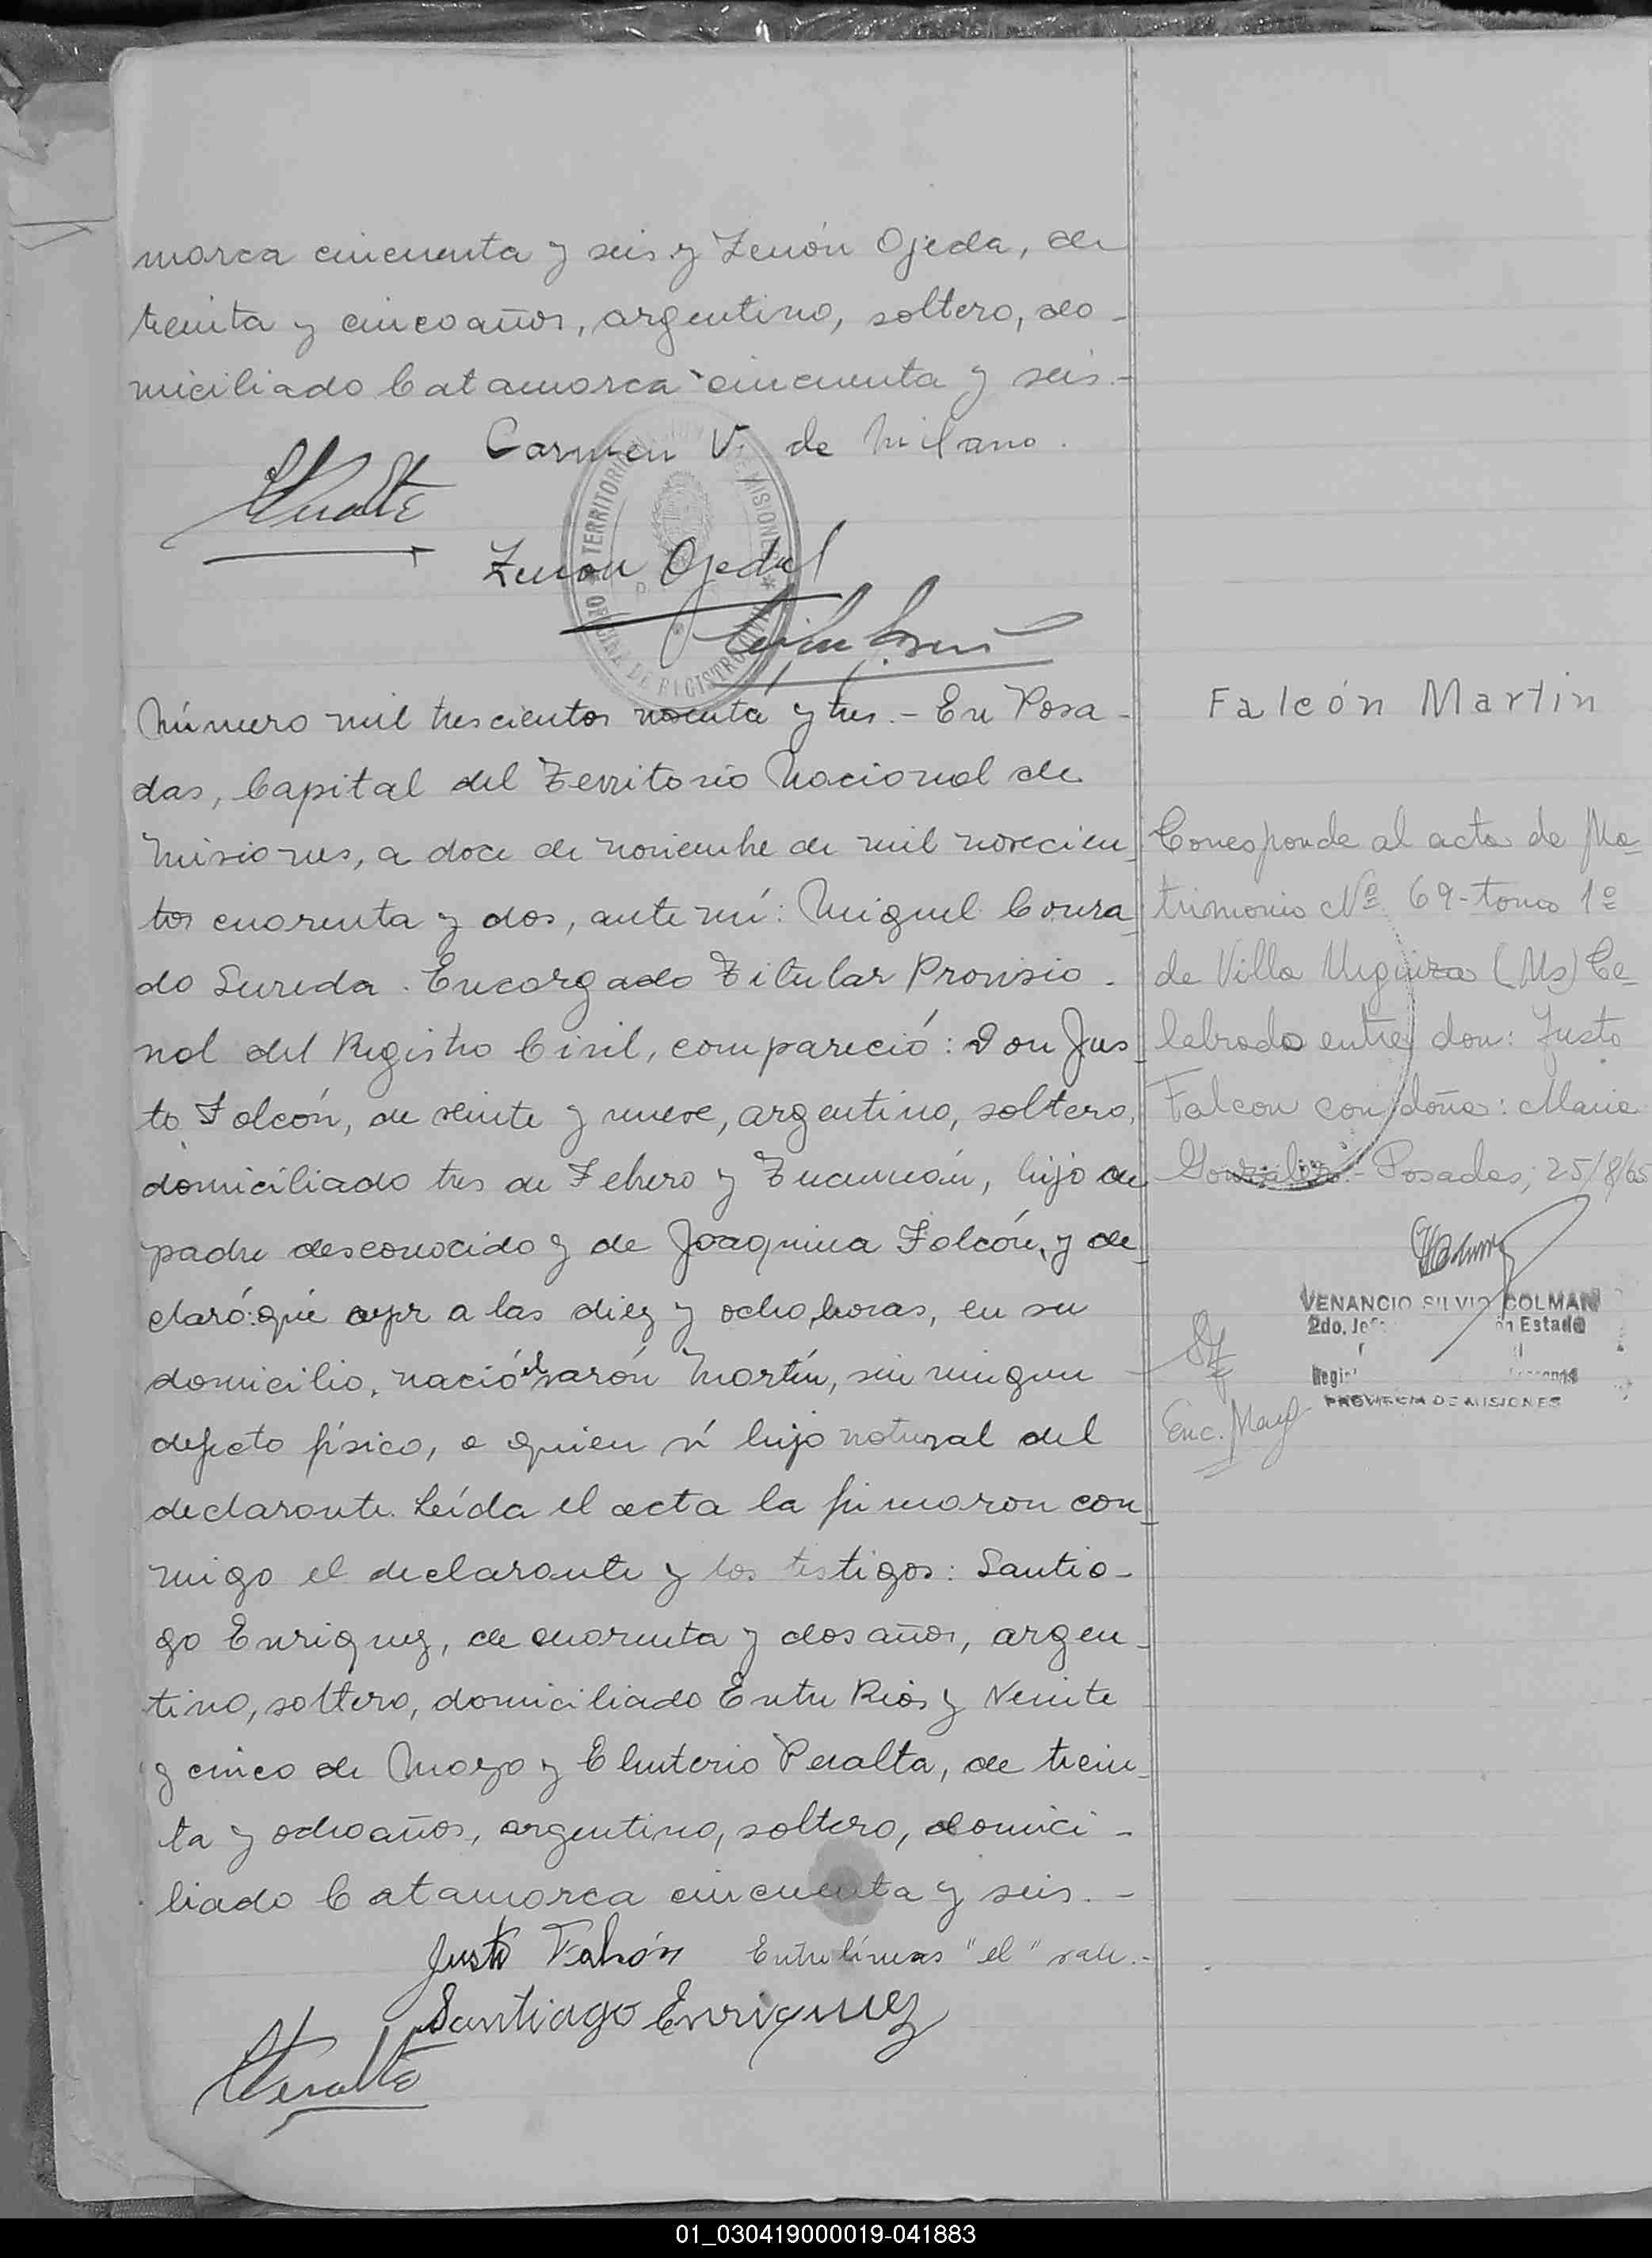 marca cincuenta y seis y Zenón Ojeda, de
treinta y cinco años, argentino, soltero, do-
miciliado Catamarca cincuenta y seis.-
Carmen V. de Milano.
EPeralta
Zenon Ojeda
TERRITORIO MISIONES
OFICINA DE REGISTRO CIVIL
Número mil trescientos noventa y tres.- En Posa-
das, Capital del Territorio Nacional de
Misiones, a doce de noviembre de mil novecien-
tos cuarenta y dos, ante mí: Miguel Conra-
do Sureda. Encargado Titular Provisio-
nal del Registro Civil, compareció: Don Jus-
to Falcón, de veinte y nueve, argentino, soltero,
domiciliado tres de Febrero y Tucumán, hijo de
padre desconocido y de Joaquina Falcón, y de-
claró: que ayer a las diez y ocho horas, en su
domicilio, nació el varón Martín, sin ningun
defecto físico, a quien vi hijo natural del
declarante. Leída el acta la firmaron con-
migo el declarante y los testigos: Santia-
go Enriquez, de cuarenta y dos años, argen-
tino, soltero, domiciliado Entre Rios y Veinte
y cinco de Mayo y Eleuterio Peralta, de trein-
ta y ocho años, argentino, soltero, domici-
liado Catamarca cincuenta y seis.-
Justo Falcón Entre líneas "el" vale.-
Santiago Enriquez
EPeralta
Falcón Martin
Corresponde al acta de Ma-
trimonio Nº 69-tomo 1º
de Villa Urquiza (Ms) Ce-
lebrado entre don: Justo
Falcon con doña: Maria
Gonzalez.- Posadas, 25/8/65
VENANCIO SILVIO COLMAN
2do. Jefe Estado
PROVINCIA DE MISIONES
Enc. May
01_030419000019-041883